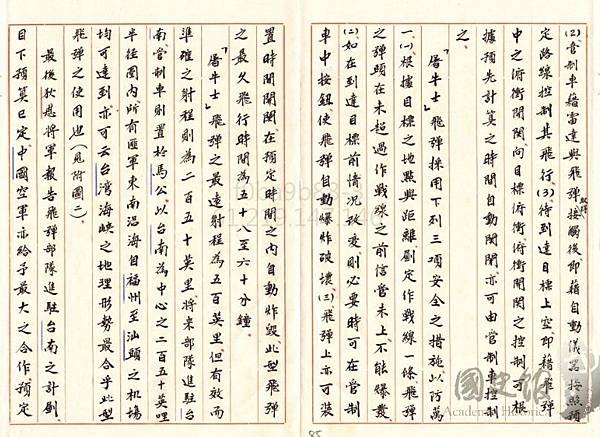 (2)管制車藉雷達與飛彈接觸後即藉自動儀器按照預
定路線控制其飛行(3)待到達目標上空即藉飛彈
中之俯衝開関向目標俯衝俯衝開関之控制可根
據預先計算之時間自動開関亦可由管制車控制
之
「屠牛士」飛彈採用下列三項安全之措施以防萬
一㈠根據目標之地點與距離劃定作戰線一條飛彈
之彈頭在未超過作戰線之前信管未上不能爆發
㈡如在到達目標前情況改變則必要時可在管制
車中按鈕使飛彈自動爆炸破壞㈢飛彈上亦可裝
置時間開関在預定時間之內自動炸毀此型飛彈
之最久飛行時間為五十八至六十分鐘
「屠牛士」飛彈之最遠射程為五百英里但有效而
準確之射程則為二百五十英里將來部隊進駐台
南管制車則置於馬公以台南為中心之二百五十英哩
半徑圈內所有匪軍東南沿海自福州至汕頭之機場
均可達到亦可云台灣海峽之地理形勢最合乎此型
飛彈之使用也(見附圖二)
最後狄恩將軍報告飛彈部隊進駐台南之計劃
目下預算已定中國空軍亦給予最大之合作預定
85
國史館
Academia Historica